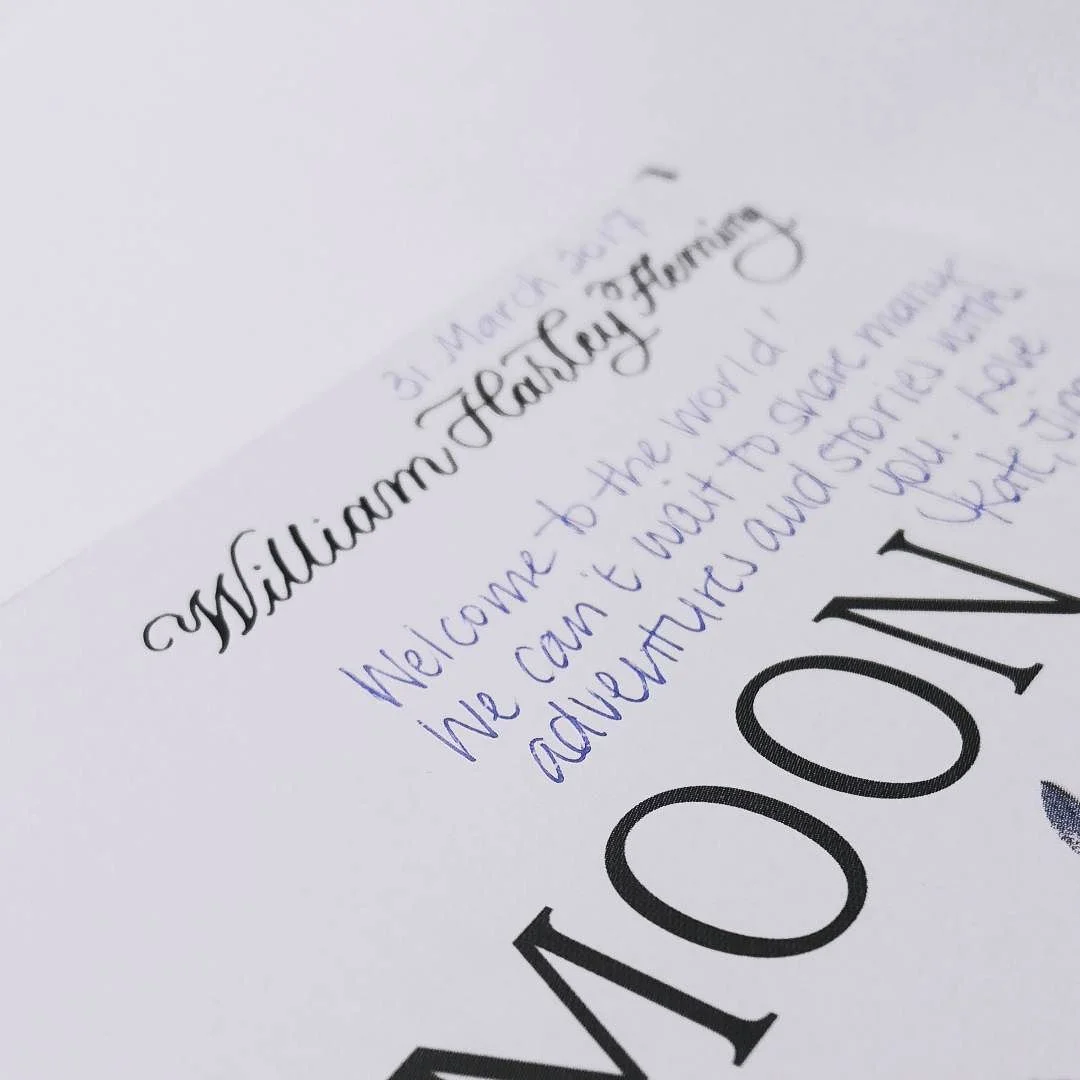 31 March 2017
William Harley Fleming
Welcome to the world!
We can't wait to share many
adventures and stories with
you. Love
Kate,
MOON